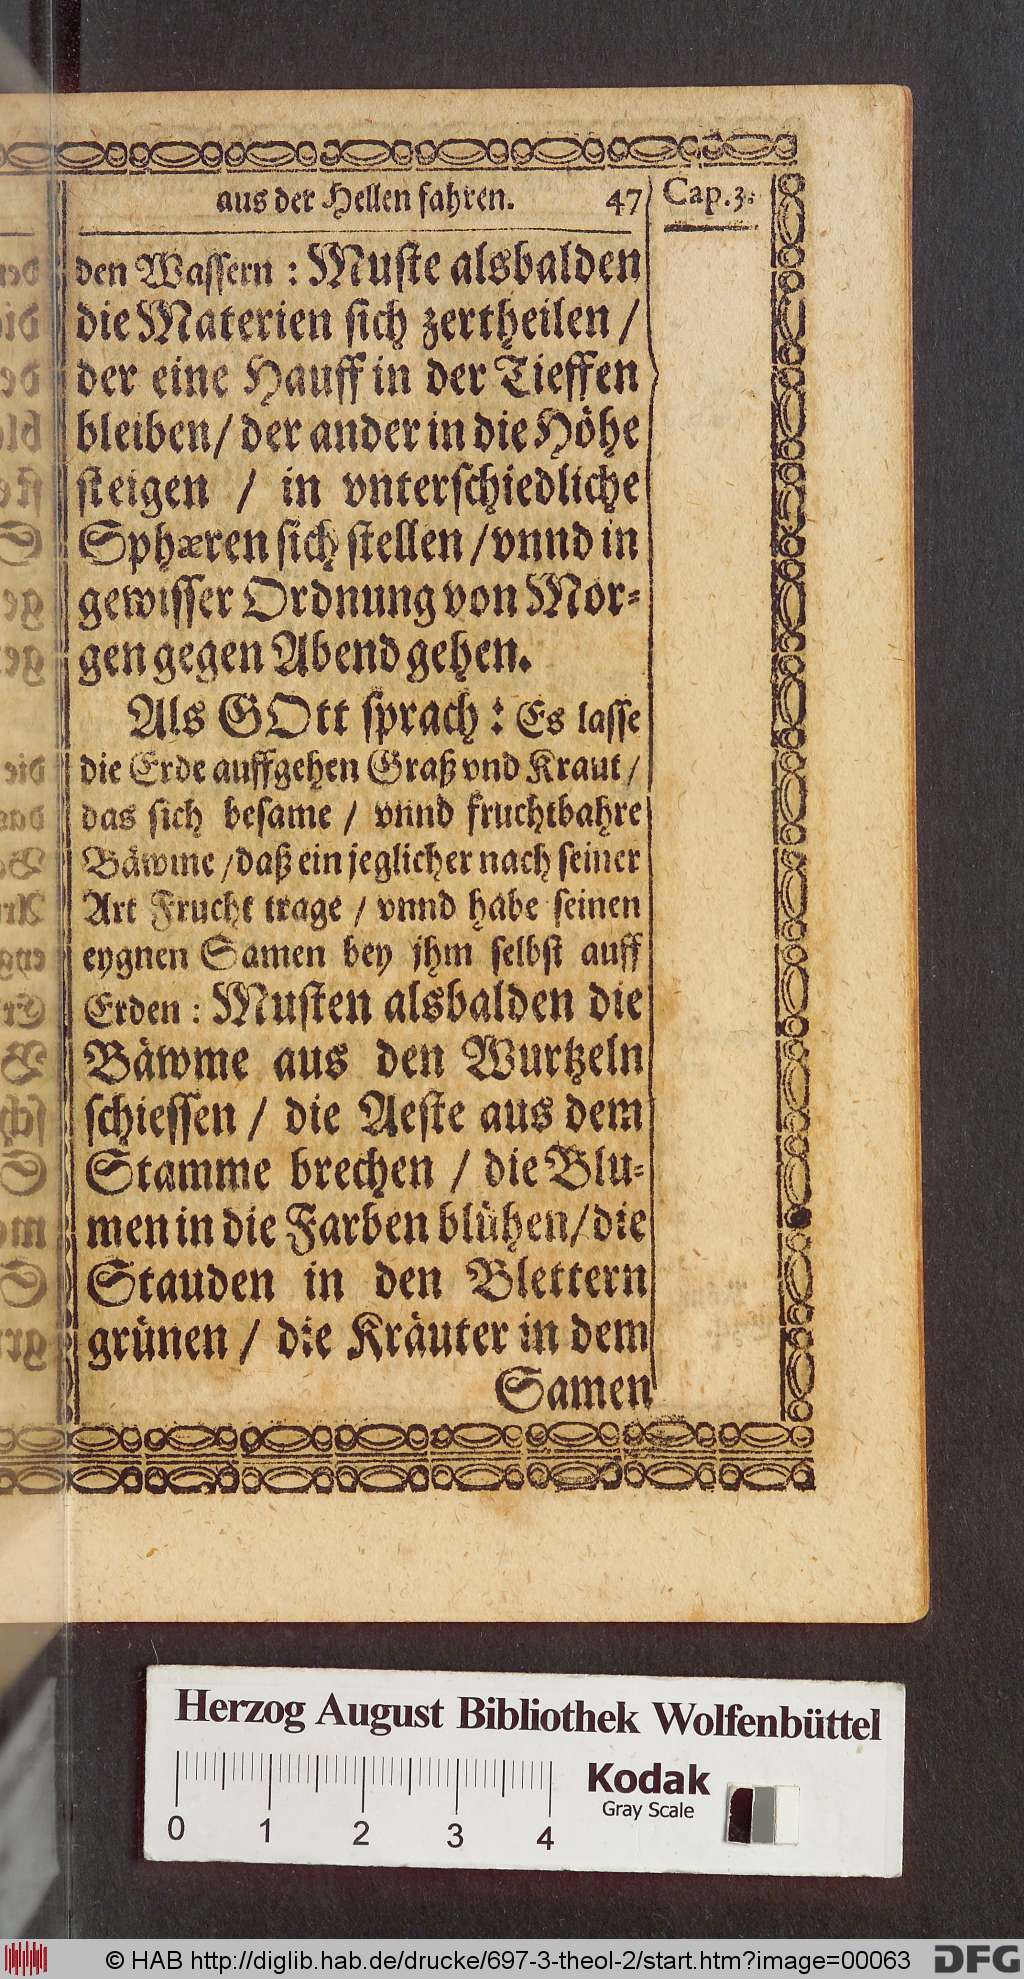 aus der Hellen fahren. 47 Cap. 3.
den Wassern : Muste alsbalden
die Materien sich zertheilen /
der eine Hauff in der Tieffen
bleiben / der ander in die Höhe
steigen / in vnterschiedliche
Sphæren sich stellen / vnnd in
gewisser Ordnung von Mor-
gen gegen Abend gehen.
Als GOtt sprach : Es lasse
die Erde auffgehen Graß vnd Kraut /
das sich besame / vnnd fruchtbahre
Bäwme / daß ein jeglicher nach seiner
Art Frucht trage / vnnd habe seinen
eygnen Samen bey jhm selbst auff
Erden : Musten alsbalden die
Bäwme aus den Wurtzeln
schiessen / die Aeste aus dem
Stamme brechen / die Blu-
men in die Farben blühen / die
Stauden in den Blettern
grünen / die Kräuter in dem
Samen
Herzog August Bibliothek Wolfenbüttel
Kodak
Gray Scale
0 1 2 3 4
© HAB http://diglib.hab.de/drucke/697-3-theol-2/start.htm?image=00063 DFG